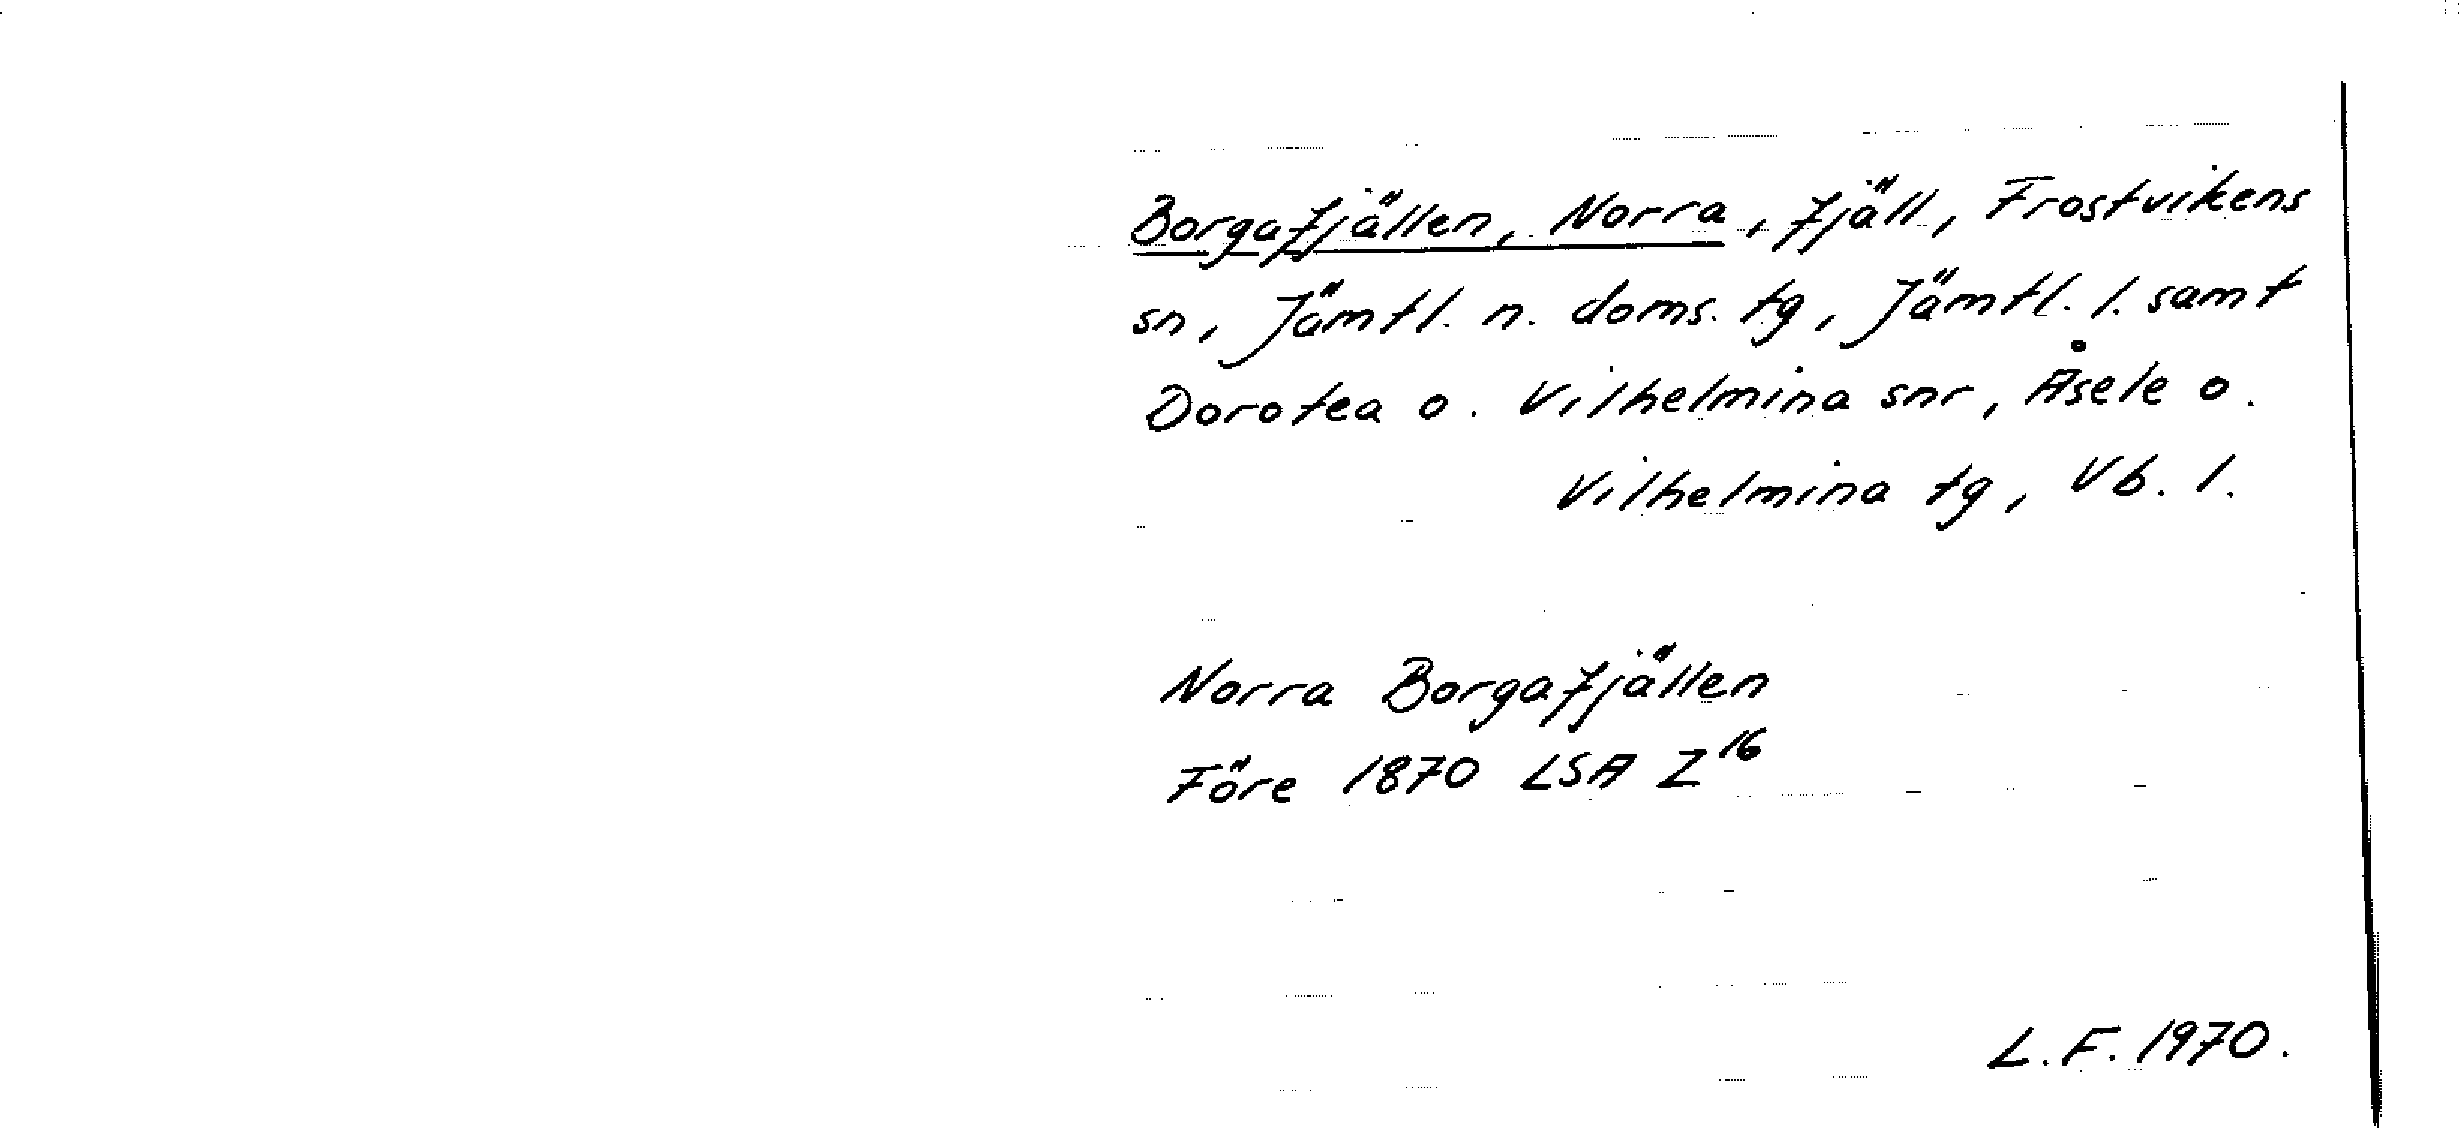 Borgafjällen, Norra, fjäll, Frostvikens
sn, Jämtl. n. doms. tg, Jämtl. l. samt
Dorotea o. Vilhelmina snr, Åsele o.
Vilhelmina tg, Vb. l.
Norra Borgafjällen
Före 1870 LSA Z¹⁶
L.F. 1970.